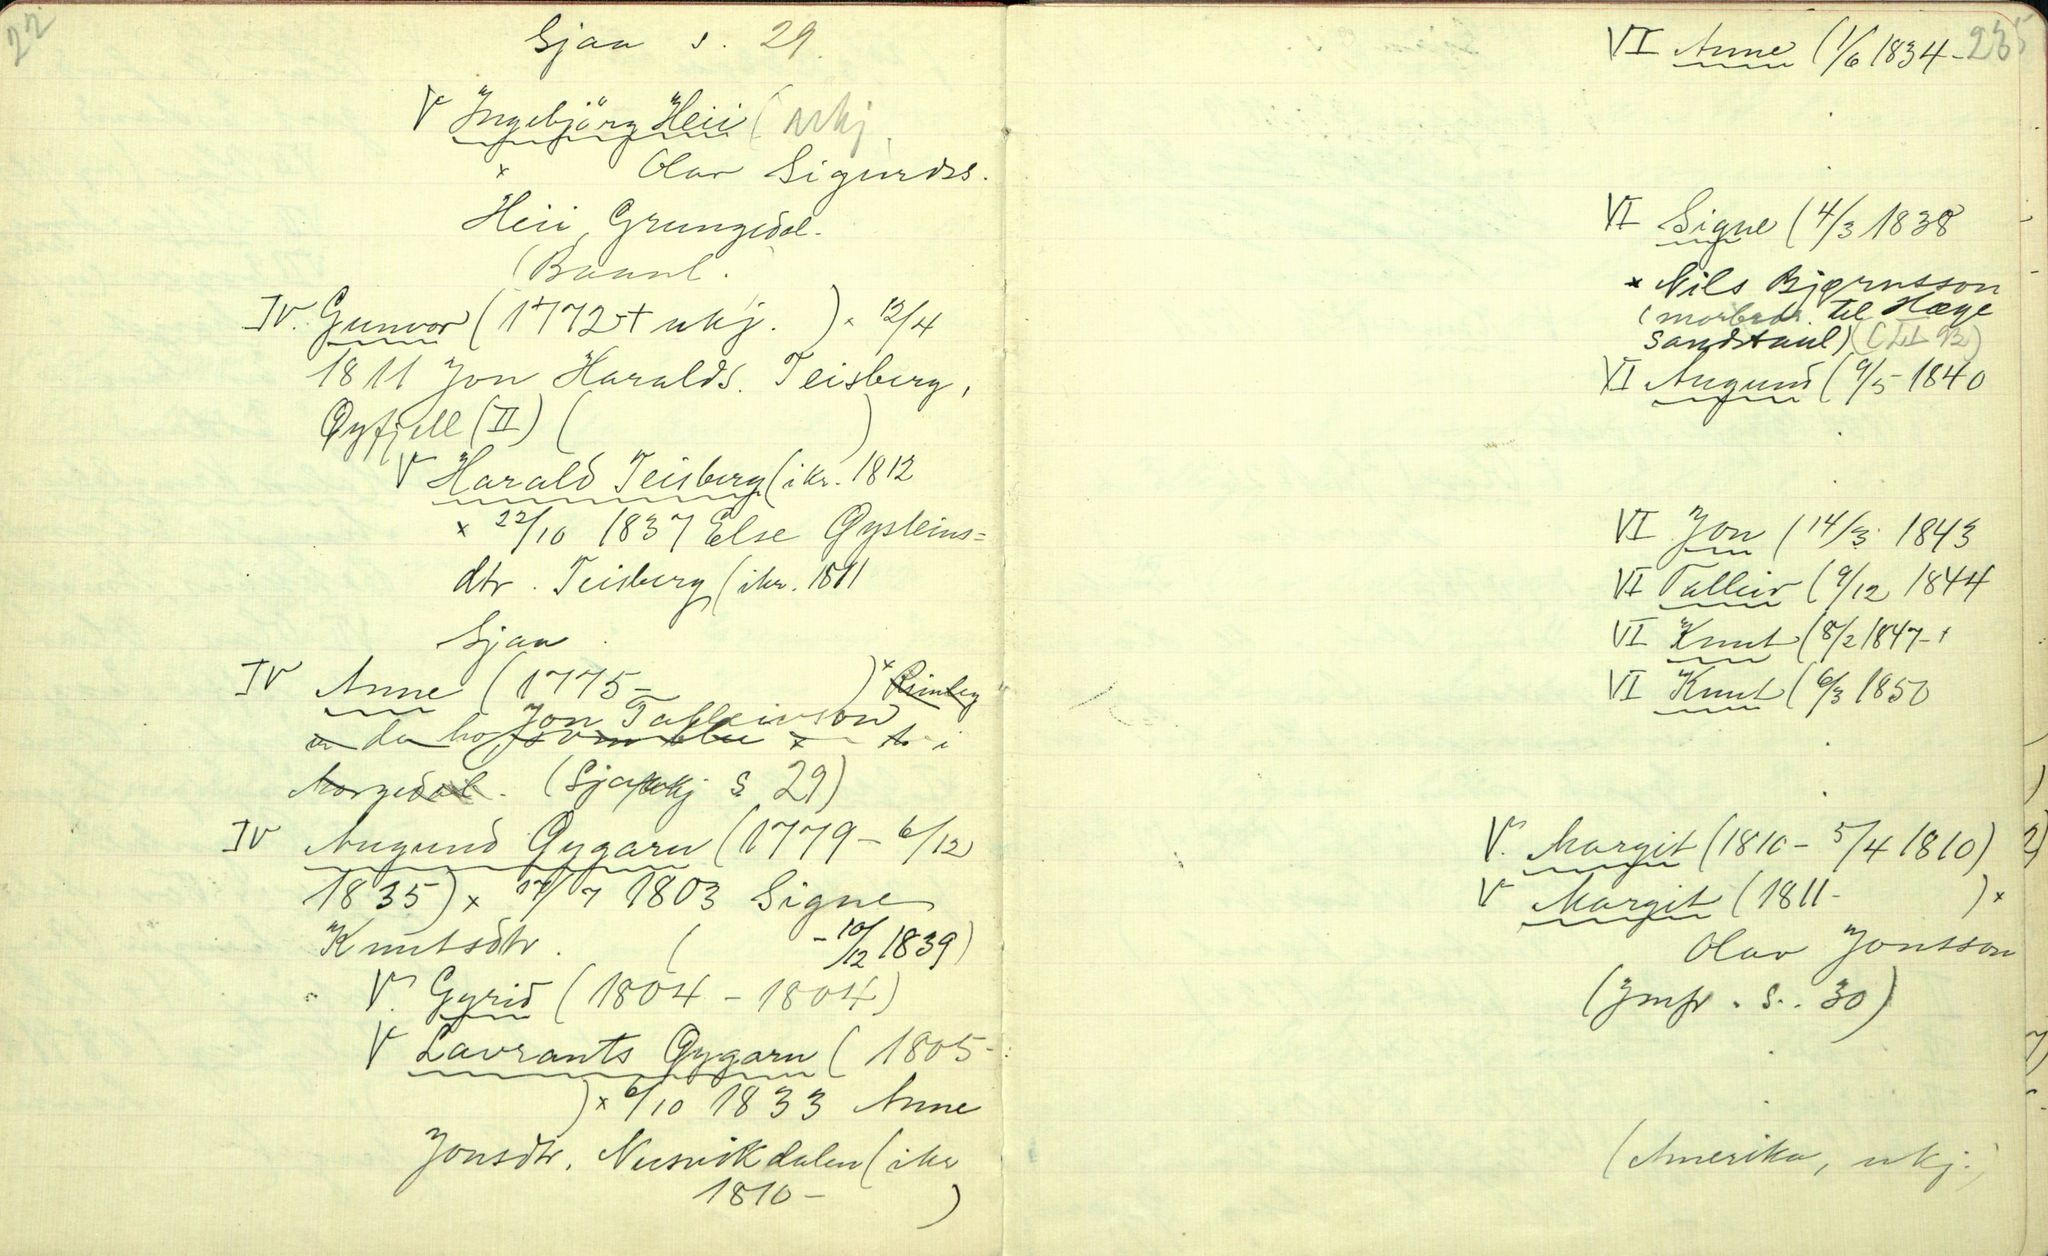 22
Sjaa s. 29.
V Ingebjörg Heii ( ukj
x Olav Sigurdss.
Heii, Grungedal.
(Baanl.
IV. Gunvor (1772 + ukj. ) x 12/4
1811 Jon Haralds. Teisberg,
Øyfjell (II) ( )
V Harald Teisberg (ikr. 1812
x 22/10 1837 Else Øysteins=
dtr. Teisberg (ikr. 1811
Sjaa
IV Anne (1775- ) x
Jon Talleivson
Morgedal. (Sjaa ukj s. 29)
IV Augund Øygarn (1779 - 6/12
1835) x 17/7 1803 Signe
Knutsdtr. ( - 10/12 1839)
V. Gyrid (1804 - 1804)
V Lavrants Øygarn ( 1805-
) x 6/10 1833 Anne
Jonsdtr. Nesvikdalen (ikr
1810 - )
235
VI Anne (1/6 1834-
VI Signe (4/3 1838
x Nils Bjørnsson
(morbror til Hæge
Sandstaul)
VI Augund (9/5 1840
VI Jon (14/3 1843
VI Talleiv (9/12 1844
VI Knut (8/2 1847-+
VI Knut (6/3 1850
V. Margit (1810 - 5/4 1810)
V Margit (1811- ) x
Olav Jonsson
(Jmfr. s. 30)
(Amerika, ukj.)